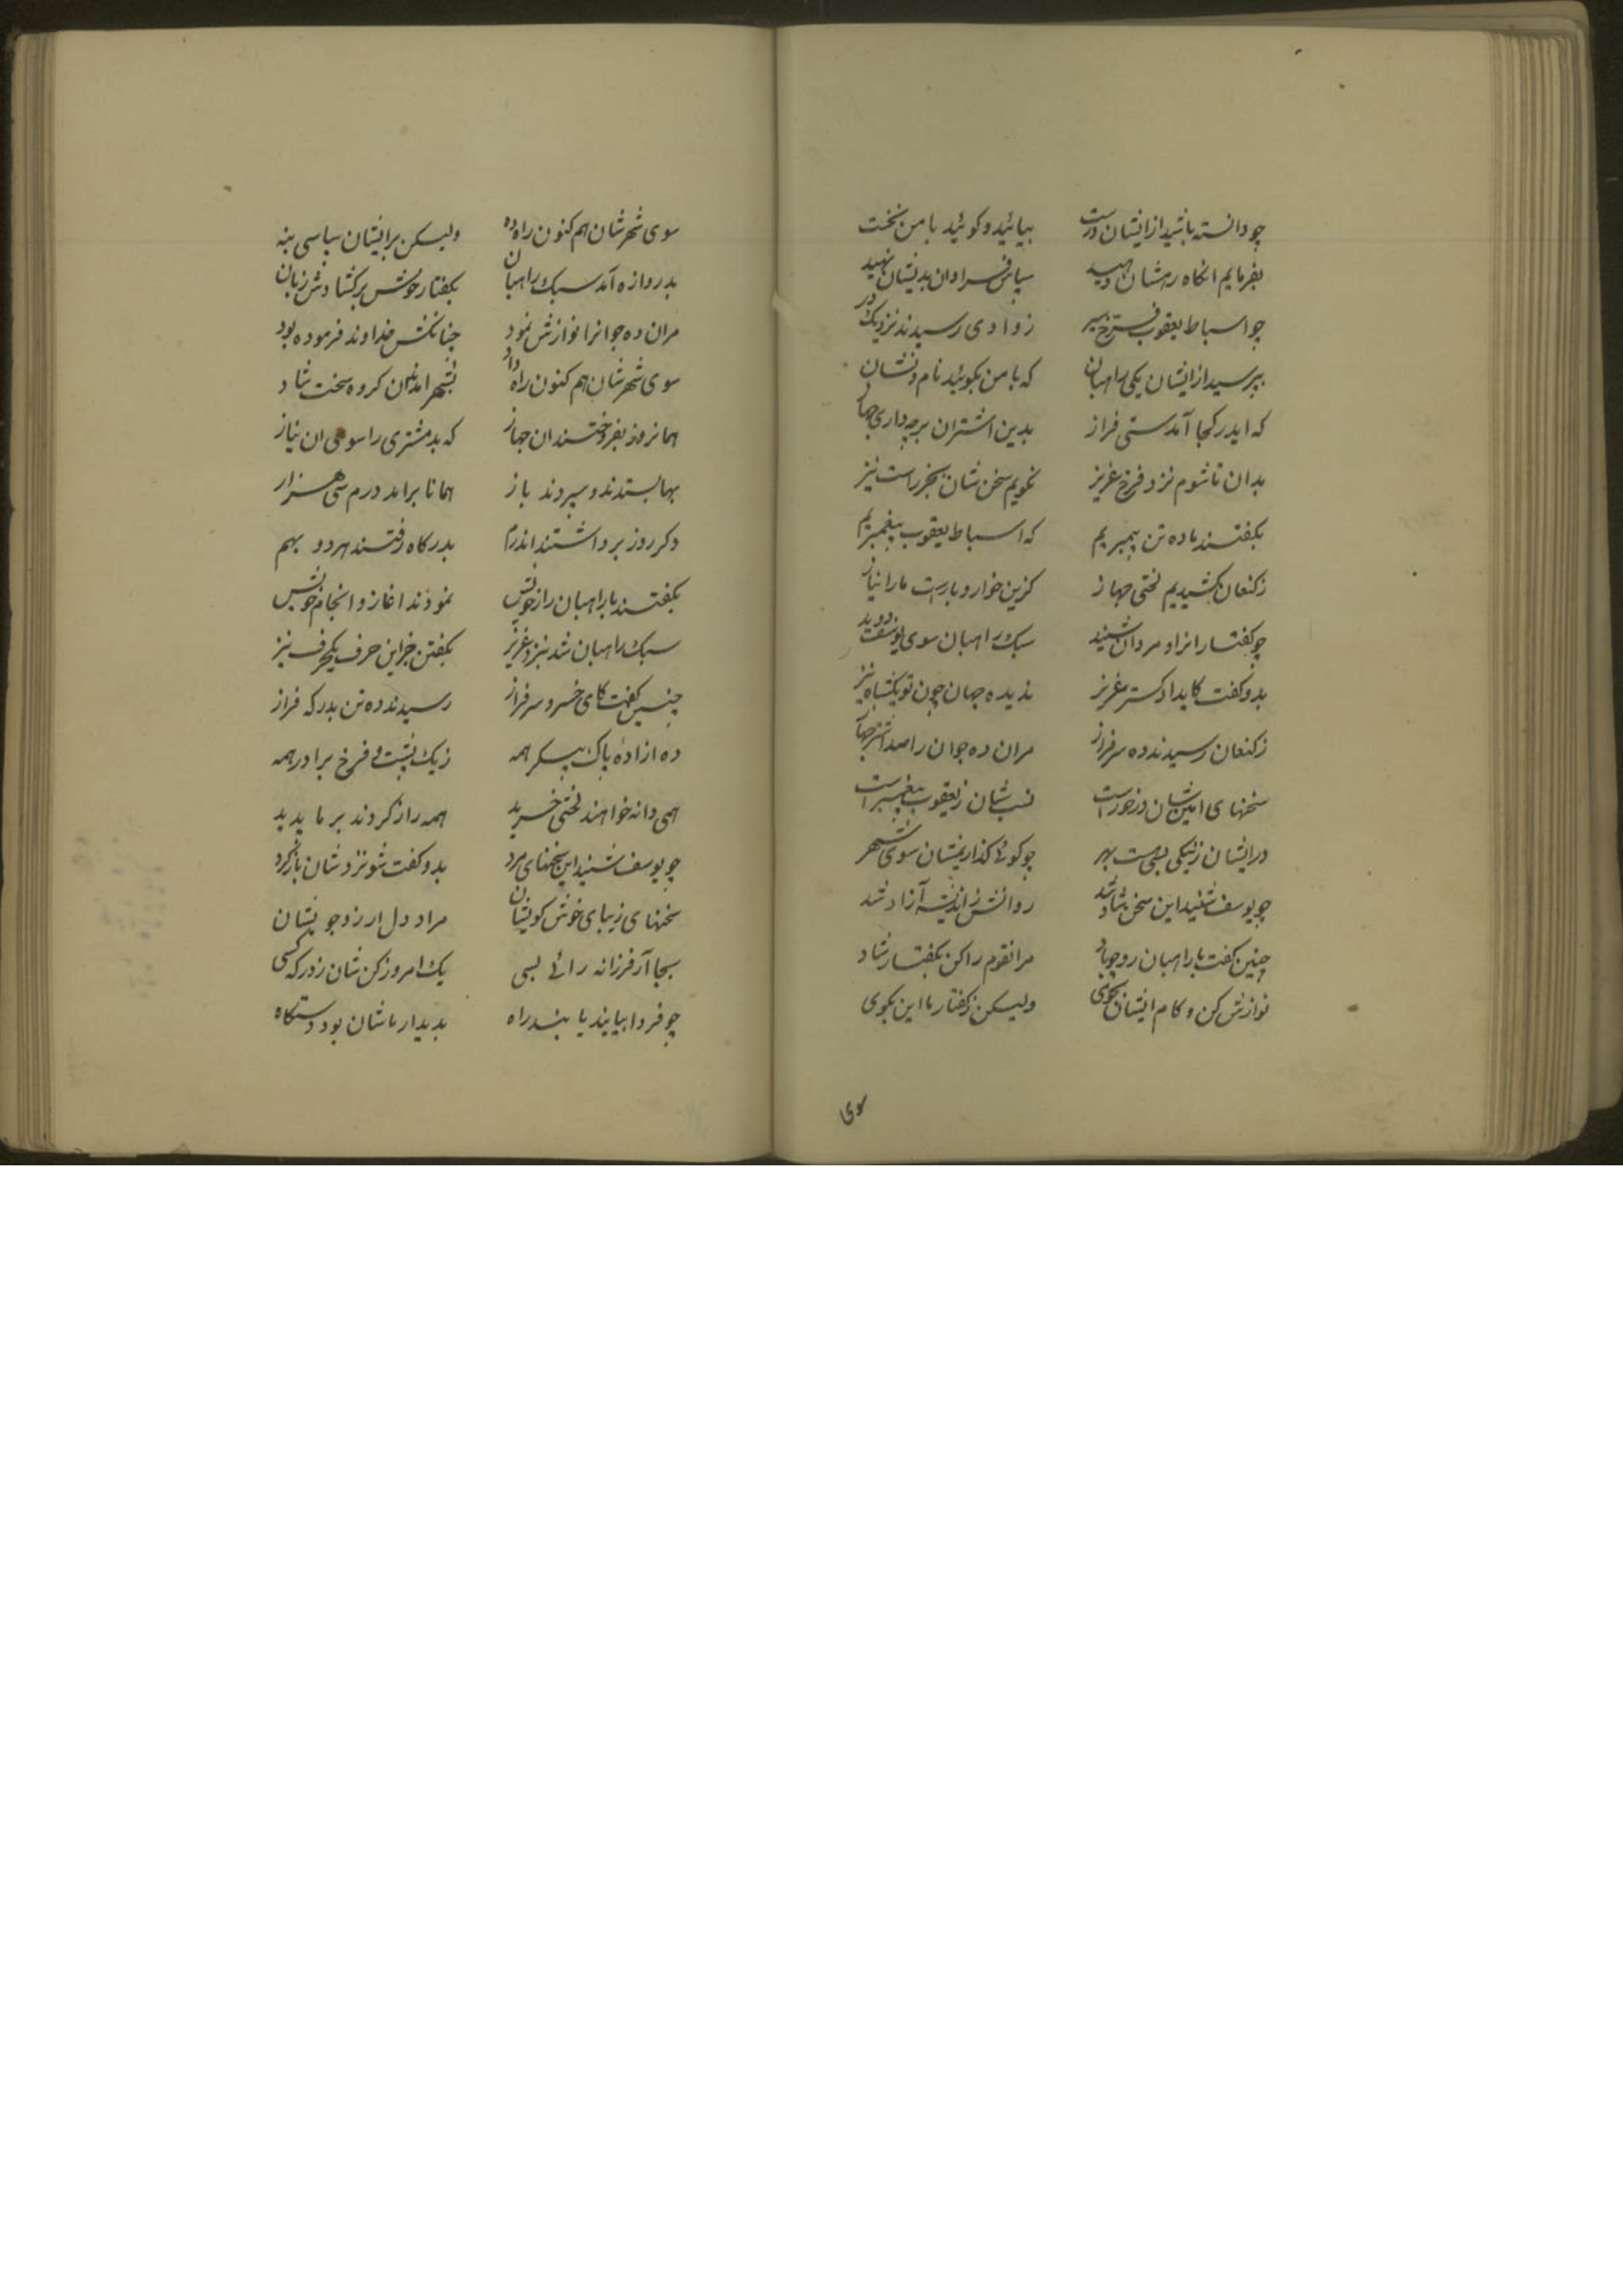 چو دانسته باشید از ایشان درست بیائید و کوئید با من نخست
بفرمایم انکاه رهشان دهید سپاس فراوان بدیشان نهید
چو اسباط یعقوب فرخ سیر ز وادی رسیدند نزدیک در
بپرسید از ایشان یکی راهبان که با من بکوئید نام و نشان
که ایدر کجا آمدستی فراز بدین اشتران بر چه داری جهاز
بدان تا شوم نزد فرخ عزیز نکویم سخن شان بجز راست نیز
بکفتند ما ده تن پیمبریم که اسباط یعقوب پیغمبریم
ز کنعان کشیدیم لختی جهاز کزین خواروبارست ما را نیاز
چو کفتار انراد مردان شنید سبک راهبان سوی یوسف دوید
بدو کفت کای دادکستر عزیز ندیده جهان چون تو یکشاه نیز
ز کنعان رسیدند ده سرفراز مران ده جوان را صد اشتر جهاز
سخنهای شان درخورست نسب شان ز یعقوب پیغمبرست
در ایشان ز نیکی بسی هست بهر چو کوئی کذاریمشان سوی شهر
چو یوسف شنید این سخن شاد شد روانش ز اندیشه آزاد شد
چنین کفت با راهبان رو چو باد مرانقوم را کن بکفتار شاد
نوازش کن و کام ایشان بجوی ولیکن ز کفتار ما این بکوی
سوی
سوی شهرشان هم کنون راه ده ولیکن بر ایشان سپاسی بنه
بدروازه آمد سبک راهبان بکفتار خوش برکشادش زبان
مران ده جوانرا نوازش نمود چنانکش خداوند فرموده بود
سوی شهرشان هم کنون راه داد بشهر امدند ان کروه سخت شاد
همانروز بفروختند ان جهاز که بد مشتری را سوی ان نیاز
بها بستدند و سپردند باز همانا برامد درم سی هزار
دکر روز برداشتند اندرم بدرکاه رفتند هر دو بهم
بکفتند با راهبان راز خویش نمودند اغاز و انجام خویش
سبک راهبان شد بنزد عزیز بکفتن جز این حرف یکحرف نیز
چنین کفت کای خسرو سرفراز رسیدند ده تن بدرکه فراز
ده ازادهٔ پاک پیکر همه ز یک پشت و فرخ برادر همه
همی دانه خواهند لختی خرید همه راز کردند بر ما پدید
چو یوسف شنید این سخنهای مرد بدو کفت شو نزدشان بازکرد
سخنهای زیبای خوش کو بشان مراد دل ارزو جو بشان
بجا آر فرزانه رائی بسی یک امروز کن شان ز درکه کسی
چو فردا بیایند یابند راه بدیدار ماشان بود دستکاه